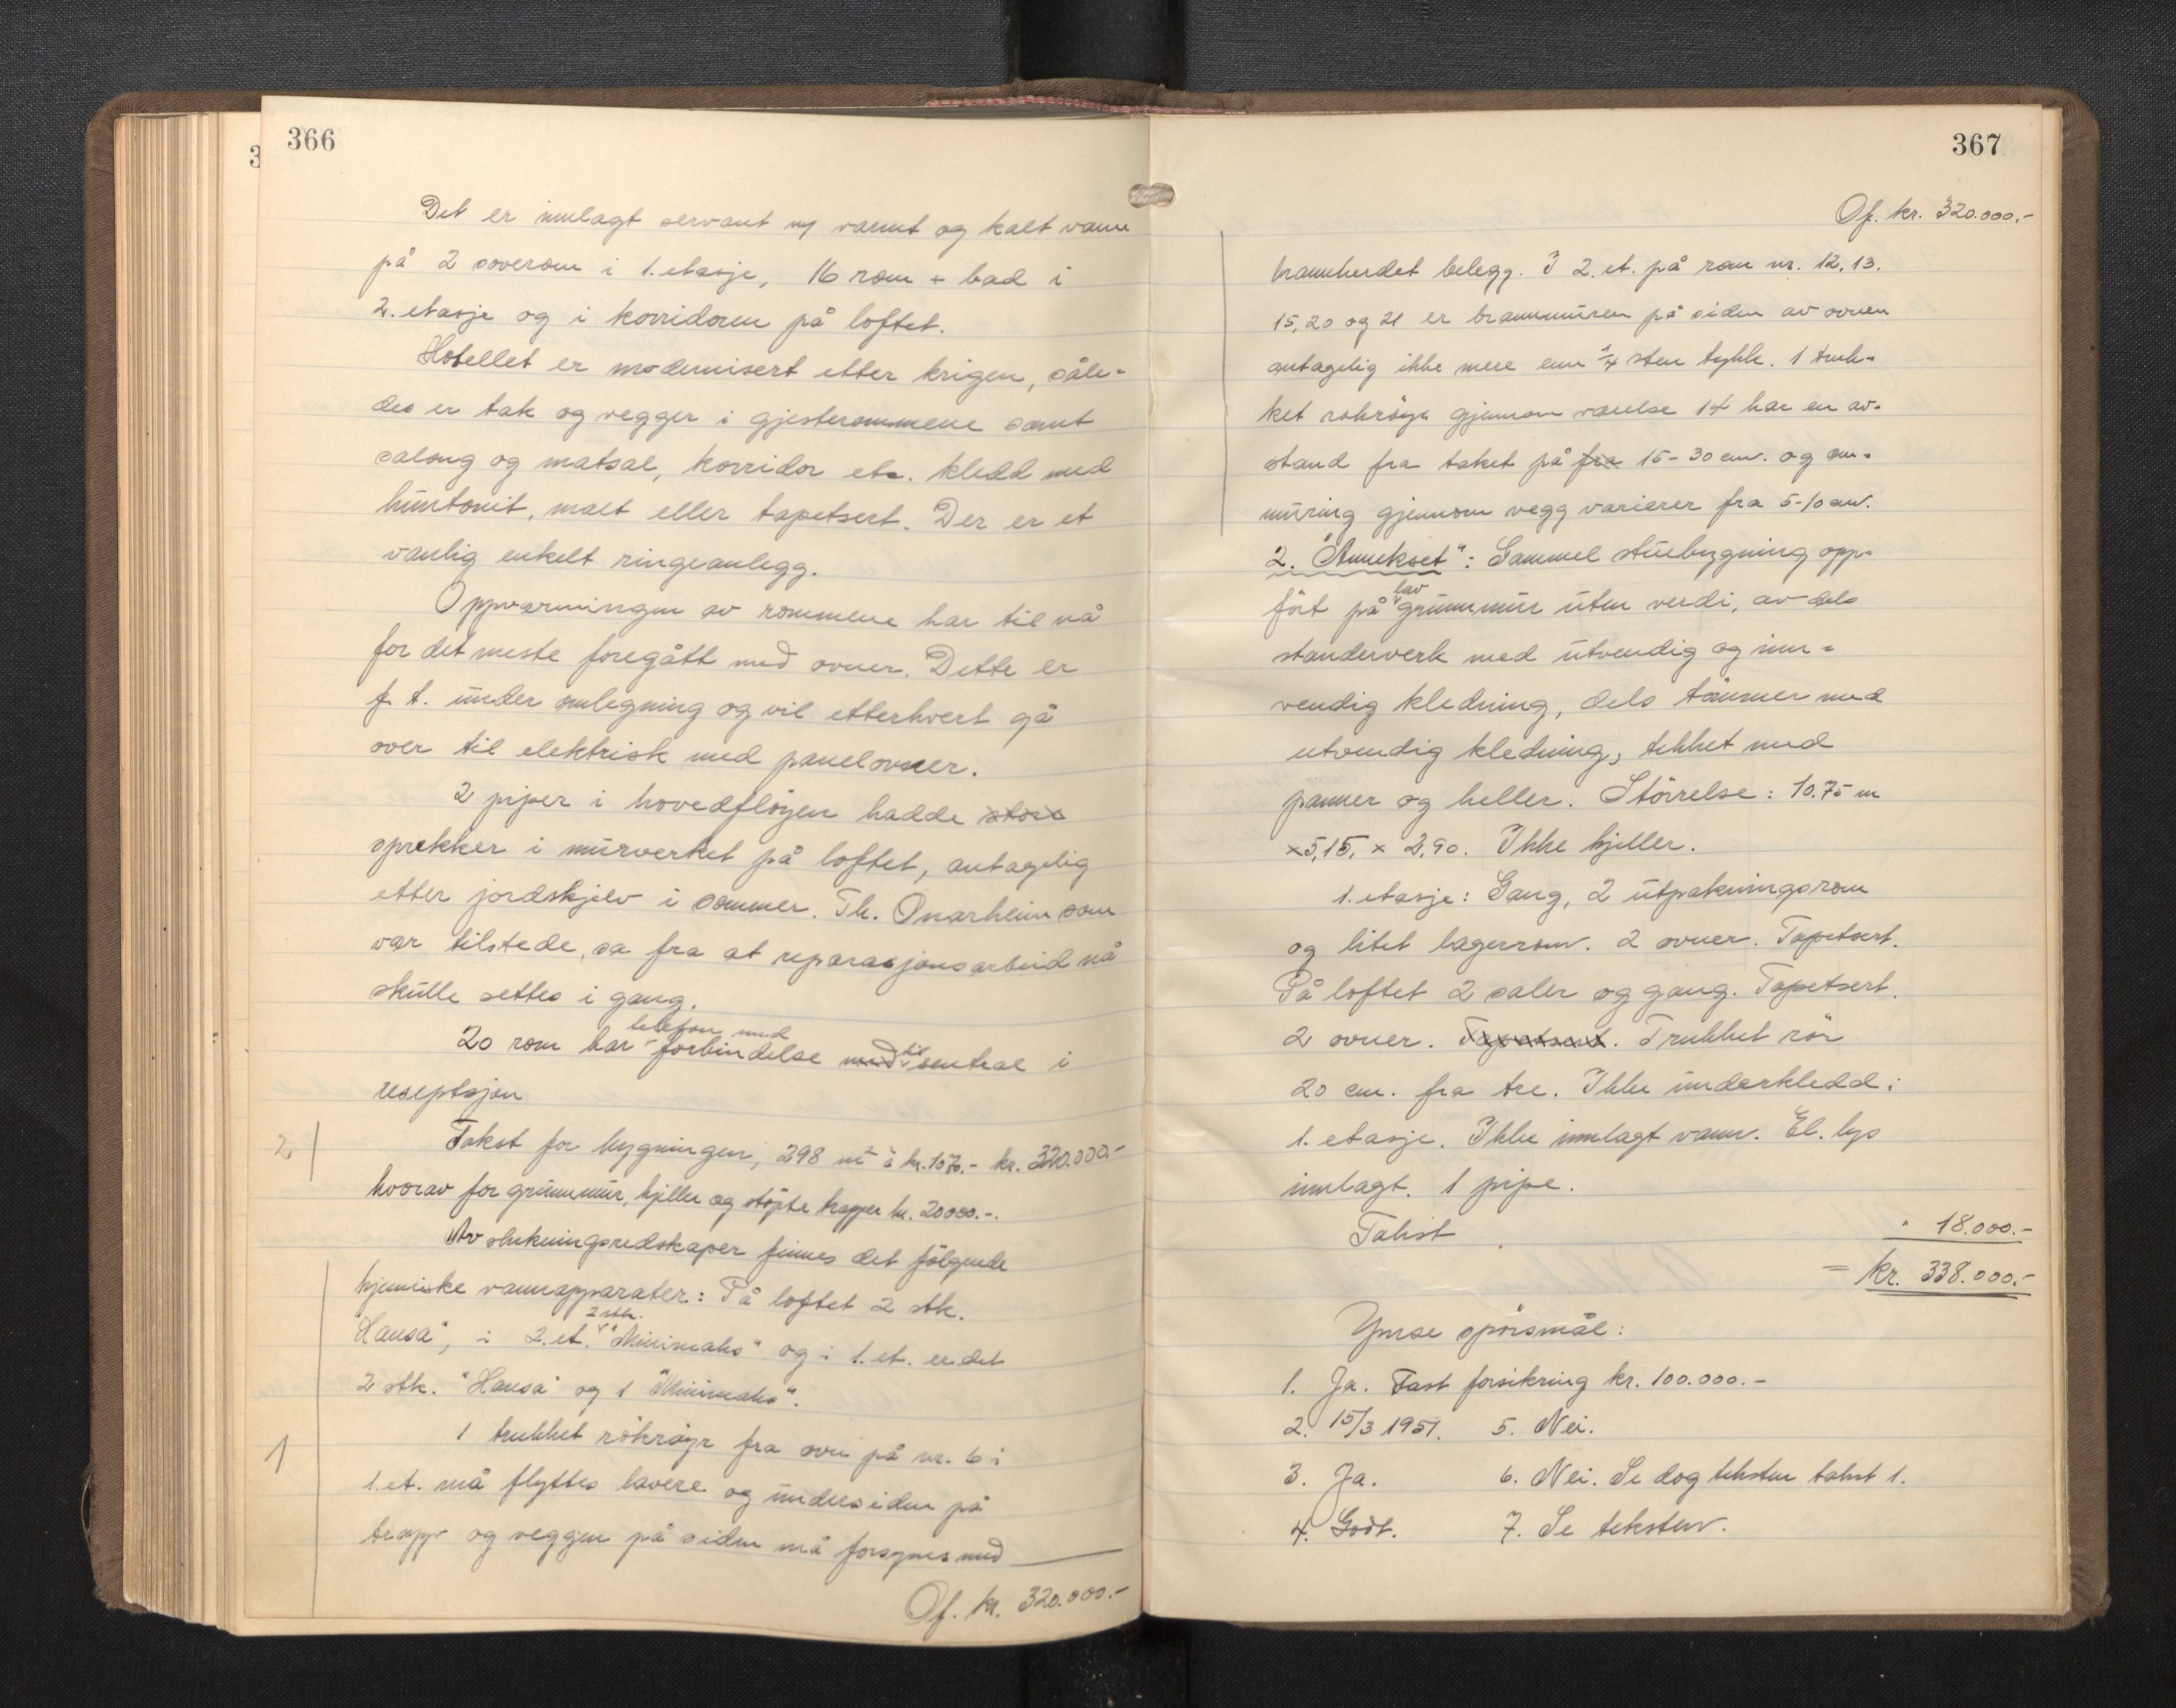 366
Det er innlagt servant m/ varmt og kalt vann
på 2 soverom i 1. etasje, 16 rom + bad i
2. etasje og i korridoren på loftet.
Hotellet er modernisert etter krigen, såle-
des er tak og vegger i gjesterommene samt
salong og matsal, korridor etc. kledd med
huntonit, malt eller tapetsert. Der er et
vanlig enkelt ringeanlegg.
Oppvarmingen av rommene har til nå
for det meste foregått med ovner. Dette er
f. t. under omlegning og vil etterhvert gå
over til elektrisk med panelovner.
2 piper i hovedfløyen hadde store
sprekker i murverket på loftet, antagelig
etter jordskjelv i sommer. Th. Onarheim som
var tilstede, sa fra at reparasjonsarbeid nå
skulle settes i gang.
20 rom har telefon med forbindelse med til sentral i
resepsjon
2
Takst for bygningen, 298 m² à kr. 1070.- kr. 320.000.-
hvorav for grunnmur, kjeller og støpte trapper kr. 20000.-.
Av slukningsredskaper finnes det følgende
kjemiske vannapparater: På loftet 2 stk.
Hansa", i 2. et. 2 stk. "Minimaks" og i 1. et. er det
2 stk. "Hansa" og 1 "Minimaks".
1
1 trukket røkrøyr fra ovn på nr. 6 i
1. et. må flyttes lavere og undersiden på
trapp og veggen på siden må forsynes med
Of. kr. 320.000.-
367
Of. kr. 320.000.-
brannherdet belegg. I 2. et. på rom nr. 12, 13,
15, 20 og 21 er brannmuren på siden av ovnen
antagelig ikke mere enn 1/4 sten tykk. 1 truk-
ket røkrøyr gjennom værelse 14 har en av-
stand fra taket på fra 15-30 cm. og om-
muring gjennom vegg varierer fra 5-10 cm.
2. "Annekset": Gammel stuebygning opp-
ført på lav grunnmur uten verdi, av dels
standerverk med utvendig og inn-
vendig kledning, dels tømmer med
utvendig kledning, tekket med
panner og heller. Størrelse: 10.75 m
x 5,15, x 2,90. Ikke kjeller.
1. etasje: Gang, 2 utpakningsrom
og litet lagerrom. 2 ovner. Tapetsert.
På loftet 2 saler og gang. Tapetsert.
2 ovner. Tapetsert. Trukket rør
20 cm. fra tre. Ikke underkledd i
1. etasje. Ikke innlagt vann. El. lys
innlagt. 1 pipe.
Takst " 18.000.-
= kr. 338.000.-
Ymse spørsmål:
1. Ja. Fast forsikring kr. 100.000.-
2. 15/3 1951. 5. Nei.
3. Ja. 6. Nei. Se dog teksten takst 1.
4. Godt. 7. Se teksten.